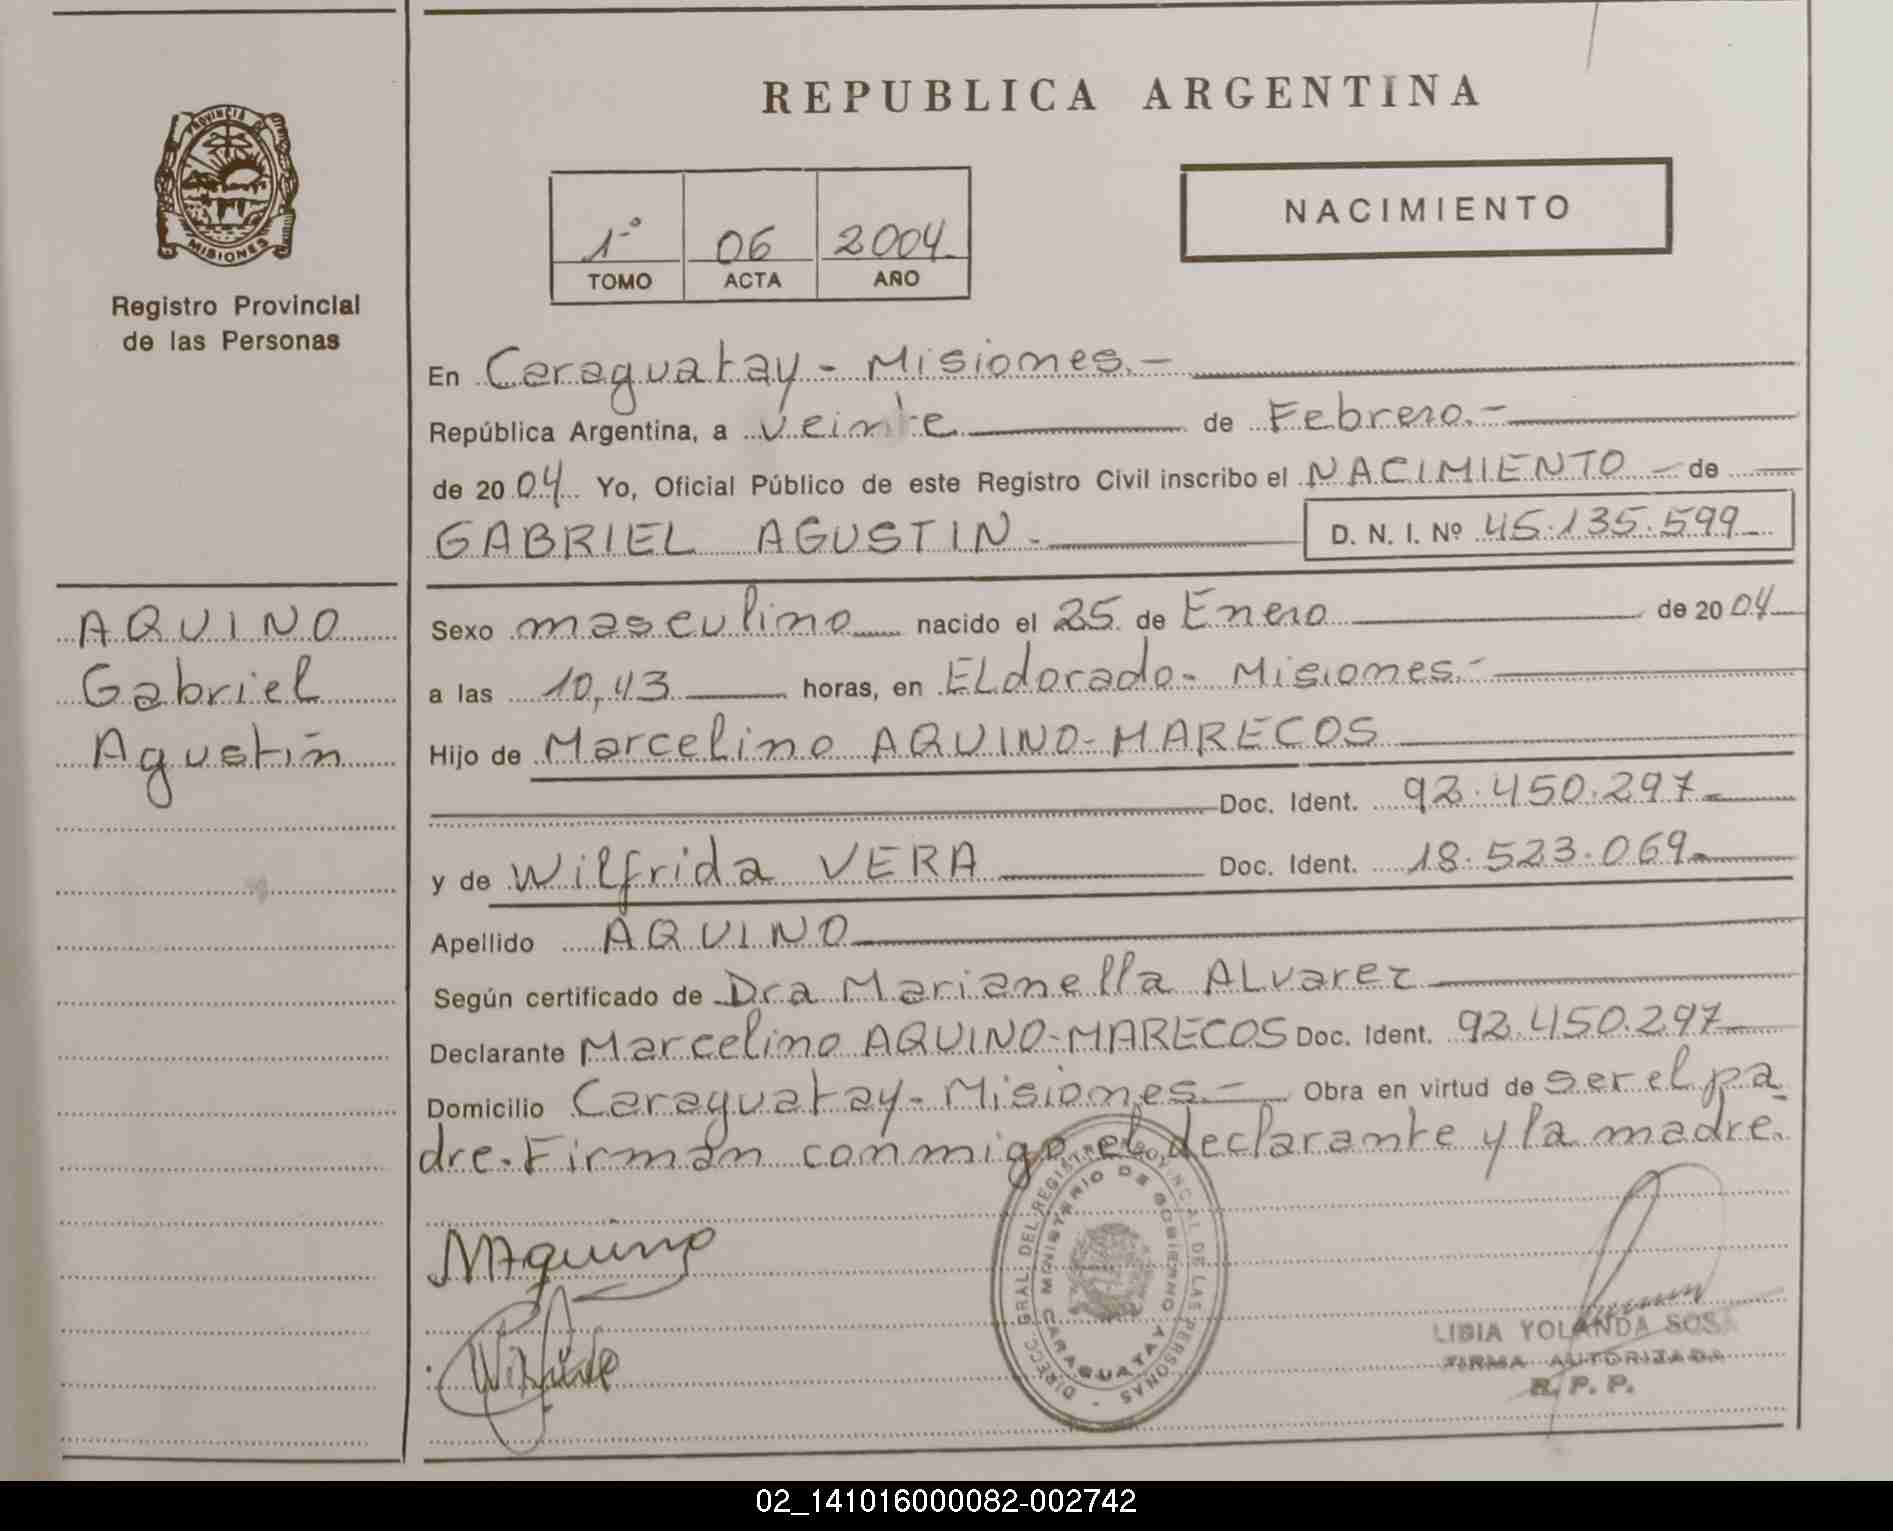 PROVINCIA DE
MISIONES
Registro Provincial
de las Personas
AQUINO
Gabriel
Agustín
REPUBLICA ARGENTINA
1º 06 2004
TOMO ACTA AÑO
NACIMIENTO
En Caraguatay - Misiones.-
República Argentina, a veinte de Febrero.-
de 2004 Yo, Oficial Público de este Registro Civil inscribo el NACIMIENTO - de
GABRIEL AGUSTIN - D. N. I. Nº 45.135.599
Sexo masculino nacido el 25 de Enero de 2004
a las 10,43 horas, en ELdorado - Misiones.-
Hijo de Marcelino AQUINO-MARECOS
Doc. Ident. 92.450.297
y de Wilfrida VERA Doc. Ident. 18.523.069
Apellido AQUINO
Según certificado de Dra Marianella ALvarez
Declarante Marcelino AQUINO-MARECOS Doc. Ident. 92.450.297
Domicilio Caraguatay - Misiones.- Obra en virtud de ser el pa
dre. Firman conmigo el declarante y la madre.
MAquino
DIRECC. GRAL. DEL REGISTRO PROVINCIAL DE LAS PERSONAS -
MINISTERIO DE GOBIERNO
CARAGUATAY
LIBIA YOLANDA SOSA
FIRMA AUTORIZADA
R. P. P.
02_141016000082-002742